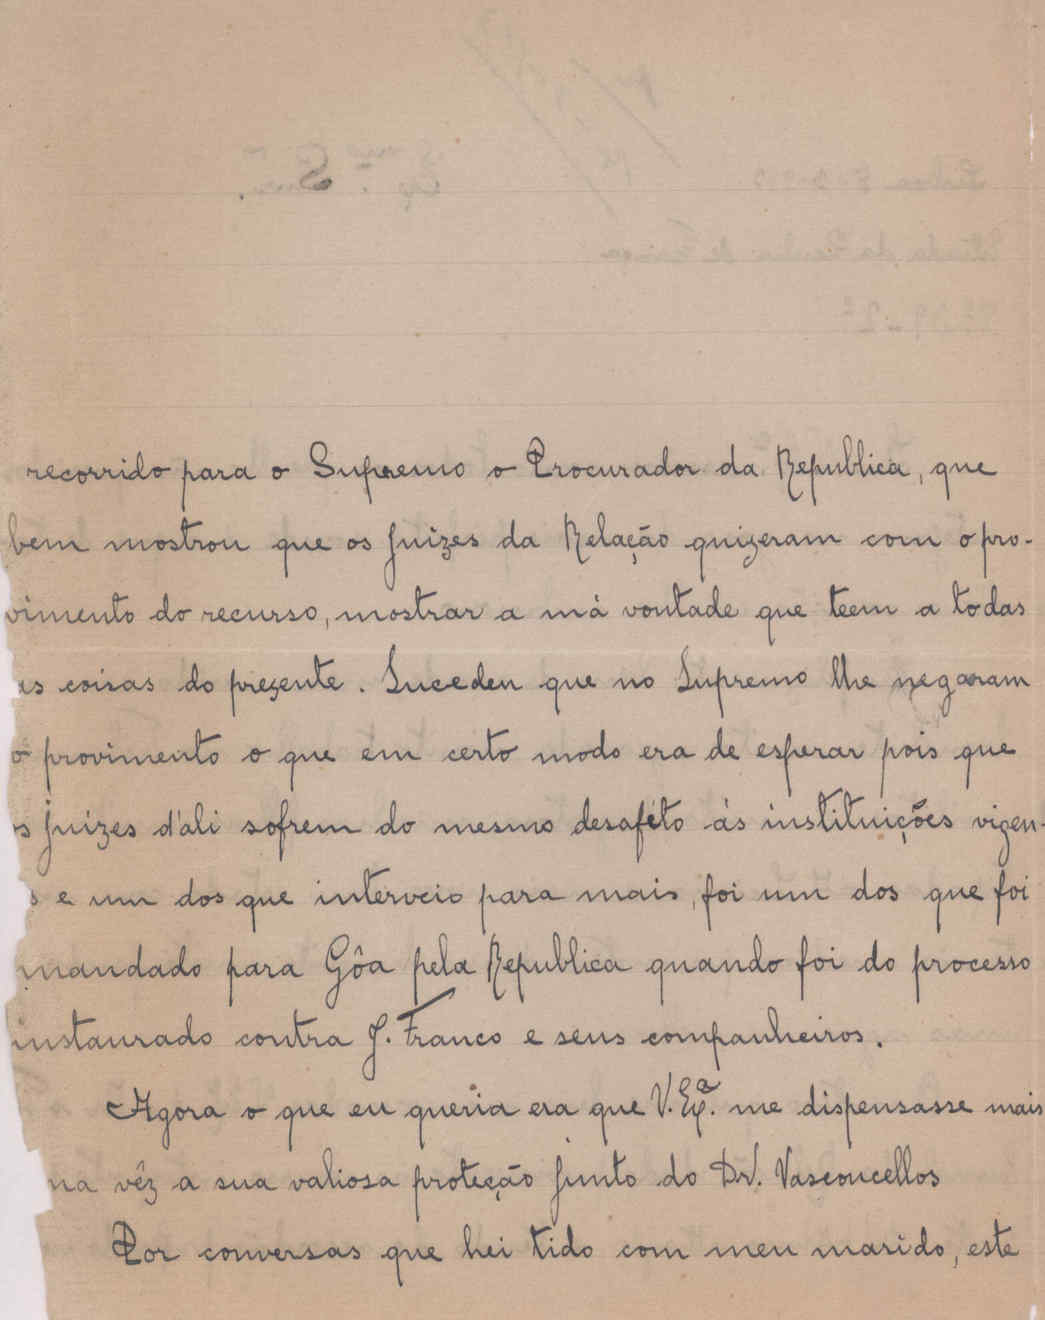 recorrido para o Supremo o Procurador da Republica, que
bem mostrou que os juizes da Relação quizeram com o pro-
vimento do recurso, mostrar a má vontade que teem a todas
as coisas do prezente. Sucedeu que no Supremo lhe negaram
o provimento o que em certo modo era de esperar pois que
os juizes d'ali sofrem do mesmo desaféto ás instituições vigen-
s e um dos que interveio para mais, foi um dos que foi
mandado para Gôa pela Republica quando foi do processo
instaurado contra J. Franco e seus companheiros.
Agora o que eu queria era que V. Exª. me dispensasse mais
ma vêz a sua valiosa proteção junto do Dr. Vasconcellos
Por conversas que hei tido com meu marido, este